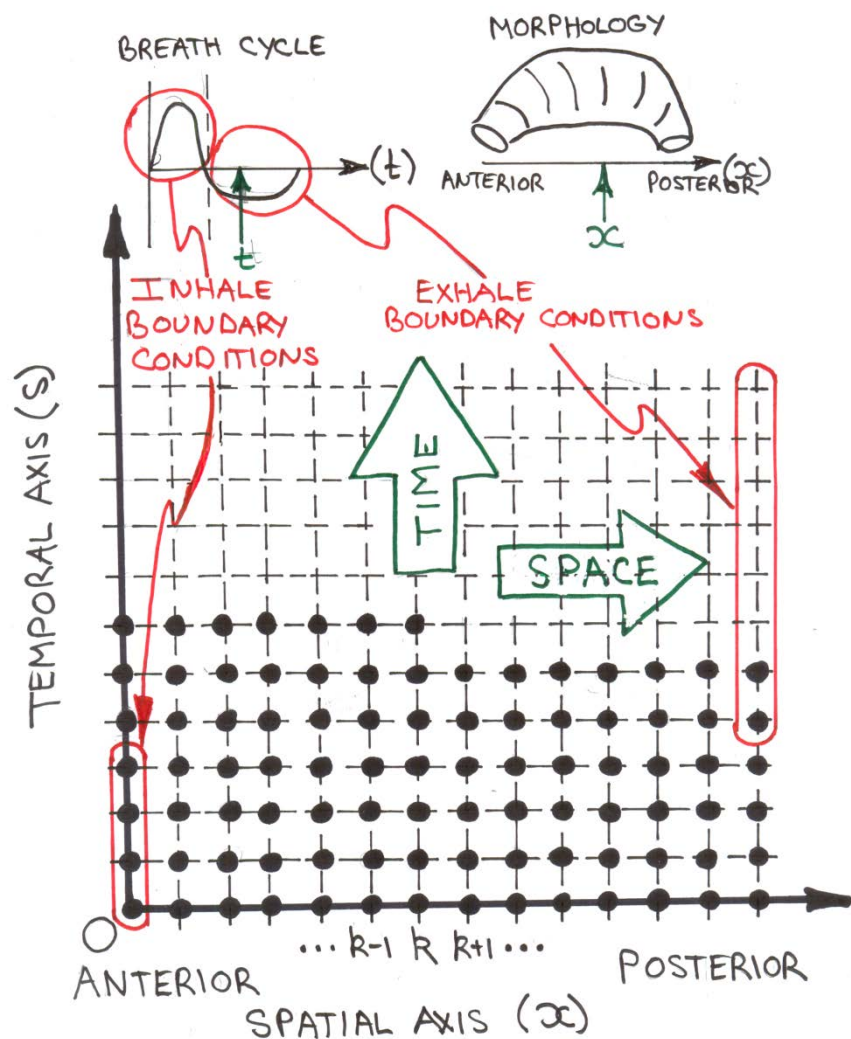 BREATH CYCLE
MORPHOLOGY
(t)
(x)
ANTERIOR
POSTERIOR
t
x
INHALE
BOUNDARY
CONDITIONS
EXHALE
BOUNDARY CONDITIONS
TIME
SPACE
TEMPORAL AXIS (S)
O
... k-1 k k+1 ...
ANTERIOR
POSTERIOR
SPATIAL AXIS (x)